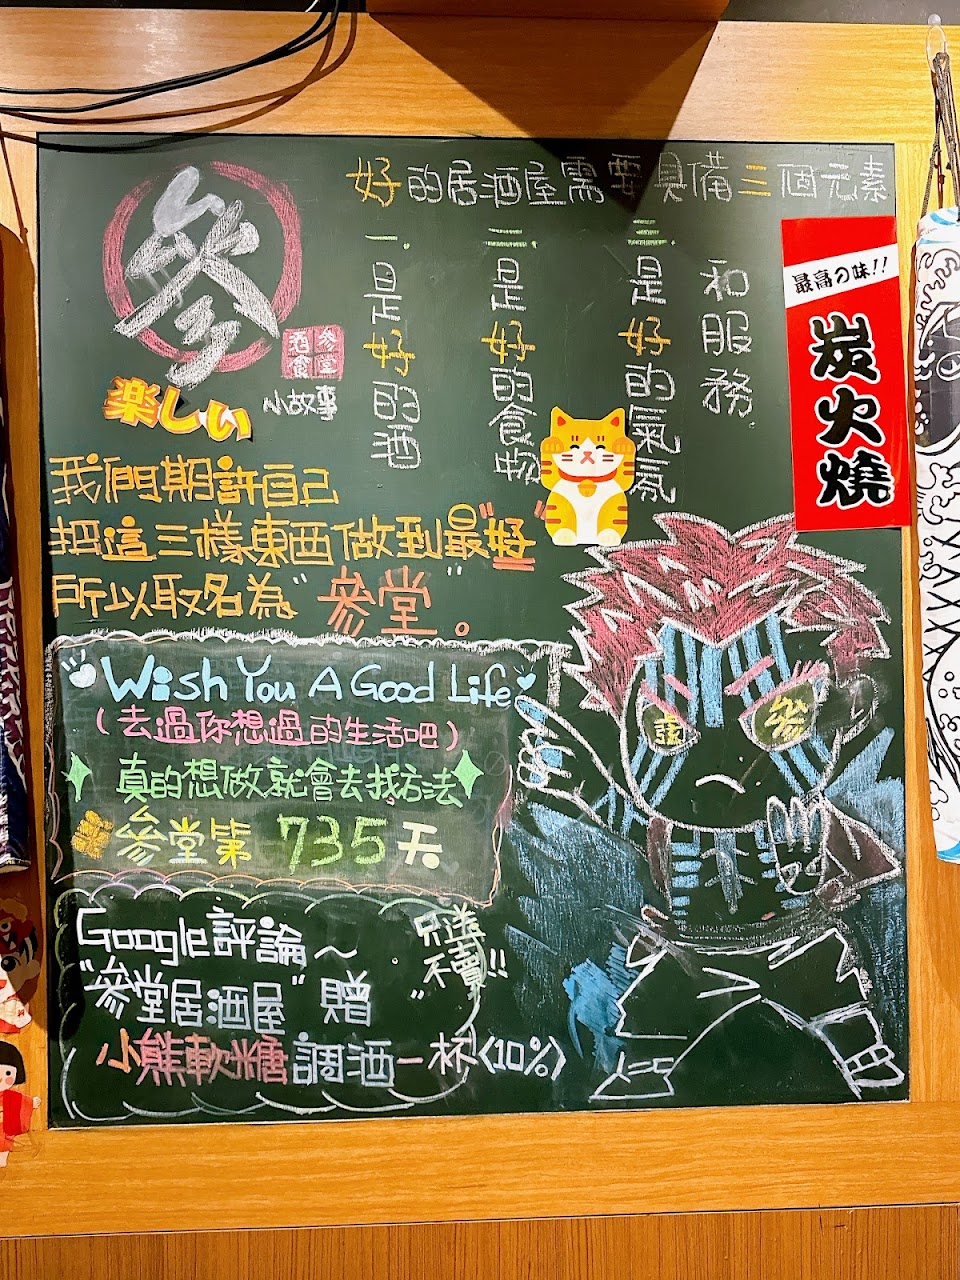 好的居酒屋需要具備三個元素
參
參堂酒食
楽しい
小故事
一.是好的酒
二.是好的食物
三.是好的氣氛
和服務
最高の味!!
炭火燒
我們期許自己
把這三樣東西做到最"好"
所以取名為"參堂"。
Wish You A Good Life
(去過你想過的生活吧)
真的想做就會去找方法
參堂第735天
Google評論～
"參堂居酒屋"贈
小熊軟糖調酒一杯<10%>
"只送不賣!!"
參